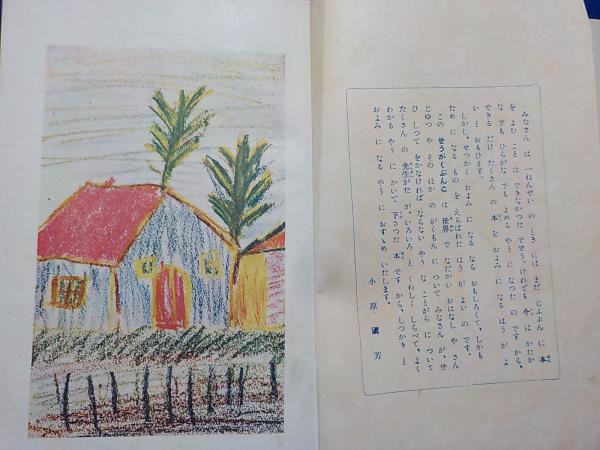 みなさん は 一ねんせい の とき に は、まだ じふぶん に 本
を よむ こと は できなかつた でせう。けれども 今 は かたか
な でも ひらがな でも よめる やう に なつた の です から、
できる だけ たくさん の 本 を お よみ に なる はう が よ
い と おもひます。
しかし、せつかく およみ に なる なら おもしろくて、しかも
ため に なる もの を えらばれた はう が よい の です。
この せうがくぶんこ は 世界 で なだかい おはなし や さん
じゆつ や その ほか の がくもん に ついて みなさん が、ぜ
ひ しつて を かなければ ならない やう な ことがら に ついて
たくさん の 先生がた が、いろいろ と くわしく しらべて、よく
わかる やう に かいて 下さつた 本 です から、しつかり と
およみ に なる やう に おすゝめ いたします。
小原 國 芳